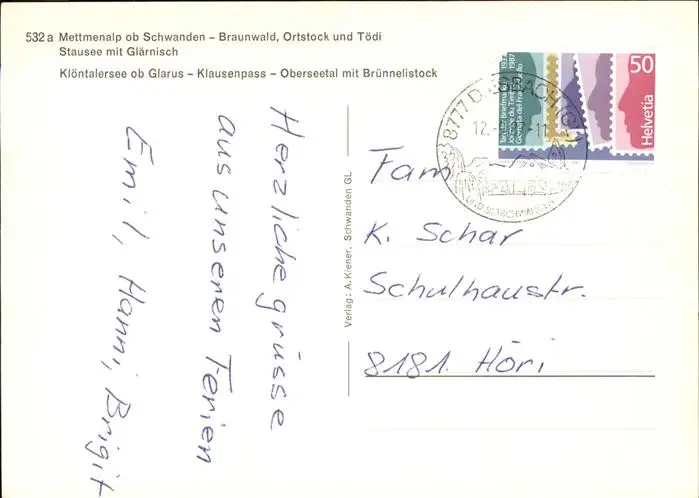 532 a Mettmenalp ob Schwanden – Braunwald, Ortstock und Tödi
Stausee mit Glärnisch
Klöntalersee ob Glarus – Klausenpass – Oberseetal mit Brünnelistock
Herzliche grüsse
aus unseren Ferien
Emil, Hanni, Brigit
Verlag: A. Kiener, Schwanden GL
Tag der Briefmarke 1937
Journée du Timbre 1987
Giornata del Francobollo
50
Helvetia
8777
12.
Fam
K. Schar
Schulhaustr.
8181 Höri